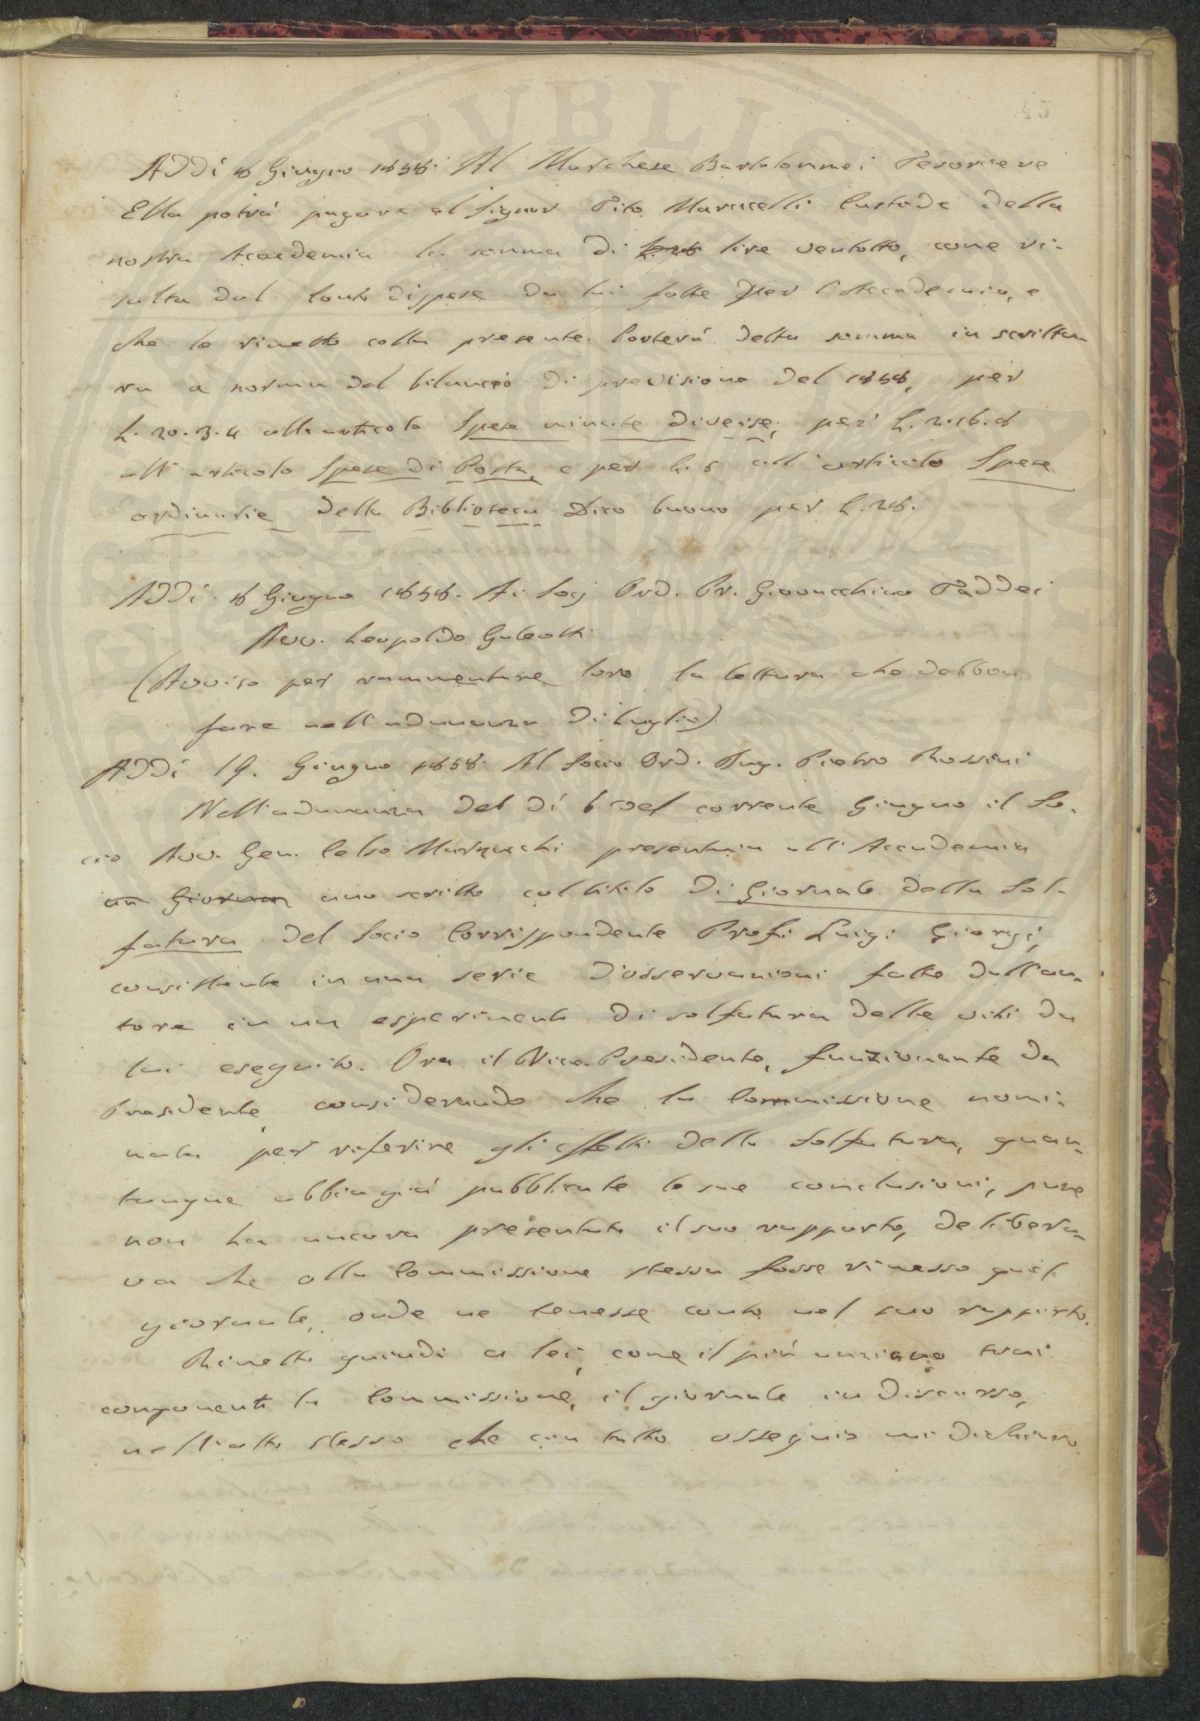 Addì 8 Giugno 1858. Al Marchese Bartolommei Tesoriere
Ella potrà pagare al Signor Tito Marucelli Custode della
nostra Accademia la somma di L. 28 lire ventotto, come ri-
sulta dal Conto di spese da lui fatte per l'Accademia, e
che le rimetto colla presente. Porterà detta somma in scrittu-
ra a norma del bilancio di previsione del 1858, per
L. 20.3.4 all'articolo Spese minute diverse, per L. 2.16.8
all'articolo Spese di Posta, e per L. 5 all'articolo Spese
ordinarie della Biblioteca Dico buono per L. 28.
Addì 8 Giugno 1858. Ai Socj Ord. Pr. Giovacchino Taddei
Avv. Leopoldo Galeotti
(Avviso per rammentare loro la lettura che debbon
fare nell'adunanza di Luglio)
Addì 19. Giugno 1858. Al Socio Ord. Ing. Pietro Rossini
Nell'adunanza del dì 6 del corrente Giugno il So-
cio Avv. Gen. Celso Marzucchi presentava all'Accademia
un Giornan uno scritto col titolo di Giornale della Sol-
fatura del Socio Corrispondente Prof. Luigi Giorgi,
consistente in una serie d'osservazioni fatte dall'au-
tore in un esperimento di solfatura delle viti da
lui eseguito. Ora il Vice Presidente, funzionante da
Presidente, considerando che la Commissione nomi-
nata per riferire gli effetti della Solfatura, quan-
tunque abbia già pubblicate le sue conclusioni, pure
non ha ancora presentato il suo rapporto, delibera-
va che alla Commissione stessa fosse rimesso quel
giornale, onde ne tenesse conto nel suo rapporto.
Rimetto quindi a lei, come il più anziano trai
componenti la Commissione, il giornale in discorso,
nell'atto stesso che con tutto ossequio mi dichiaro.